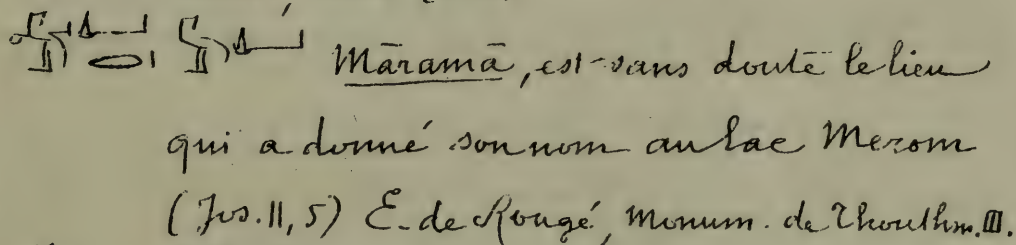 Māramā, est sans doute le lieu
qui a donné son nom au lac Merom
(Jos. 11, 5) E. de Rougé, Monum. de Thouthm. III.